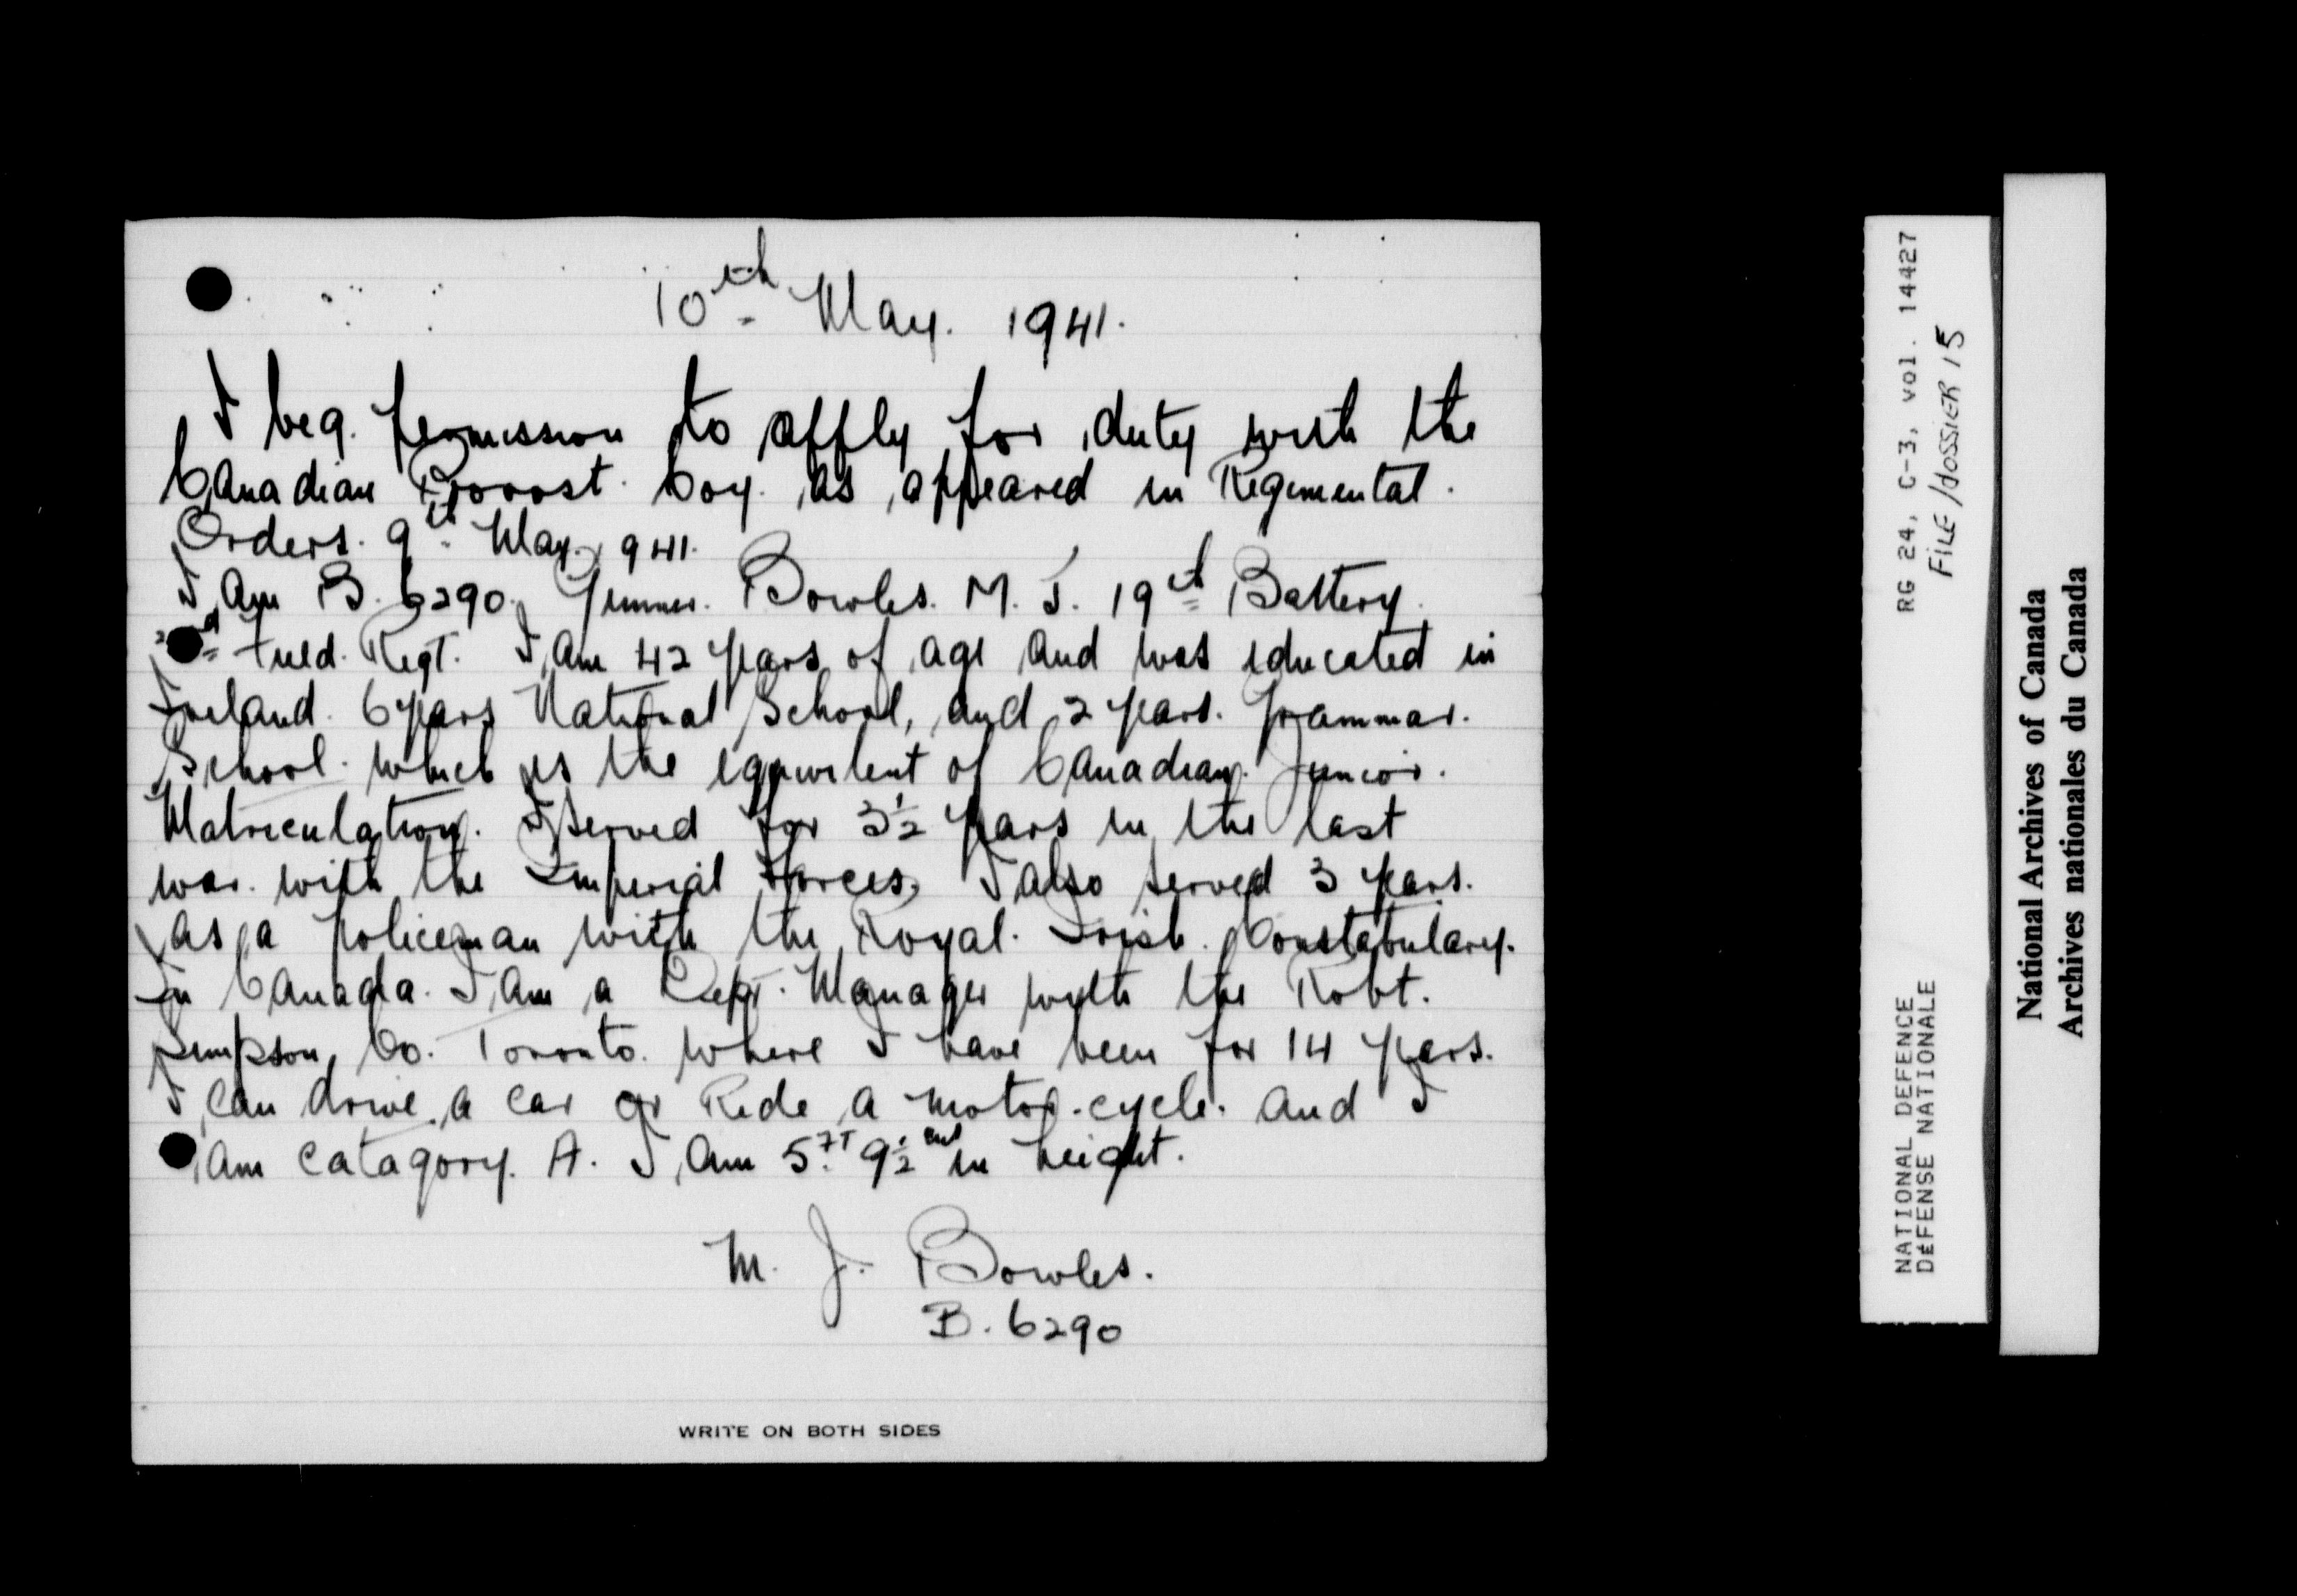 10th May. 1941.
I beg. permission to apply for duty with the
Canadian Provost. Coy. as appeared in Regimental.
Orders. 9th May. 1941.
I am B. 6290. Gunner. Bowles. M. J. 19th Battery.
2nd Field. Regt. I am 42 years of age and was educated in
Ireland. 6 years National School, and 2 years. Grammar.
School. which is the equivilent of Canadian. Junior.
Matriculation. I served for 3½ years in the last
war. with the Imperial Forces, I also served 3 years.
as a policeman with the Royal. Irish. Constabulary.
In Canada. I am a Dept. Manager with the Robt.
Simpson, Co. Toronto. where I have been for 14 years.
I can drive a car or Ride a motor-cycle. and I
am catagory. A. I am 5 FT 9½ ins in height.
M. J. Bowles.
B. 6290
WRITE ON BOTH SIDES
RG 24, C-3, vol. 14427
FILE/dOSSIER 15
NATIONAL DEFENCE
DÉFENSE NATIONALE
National Archives of Canada
Archives nationales du Canada